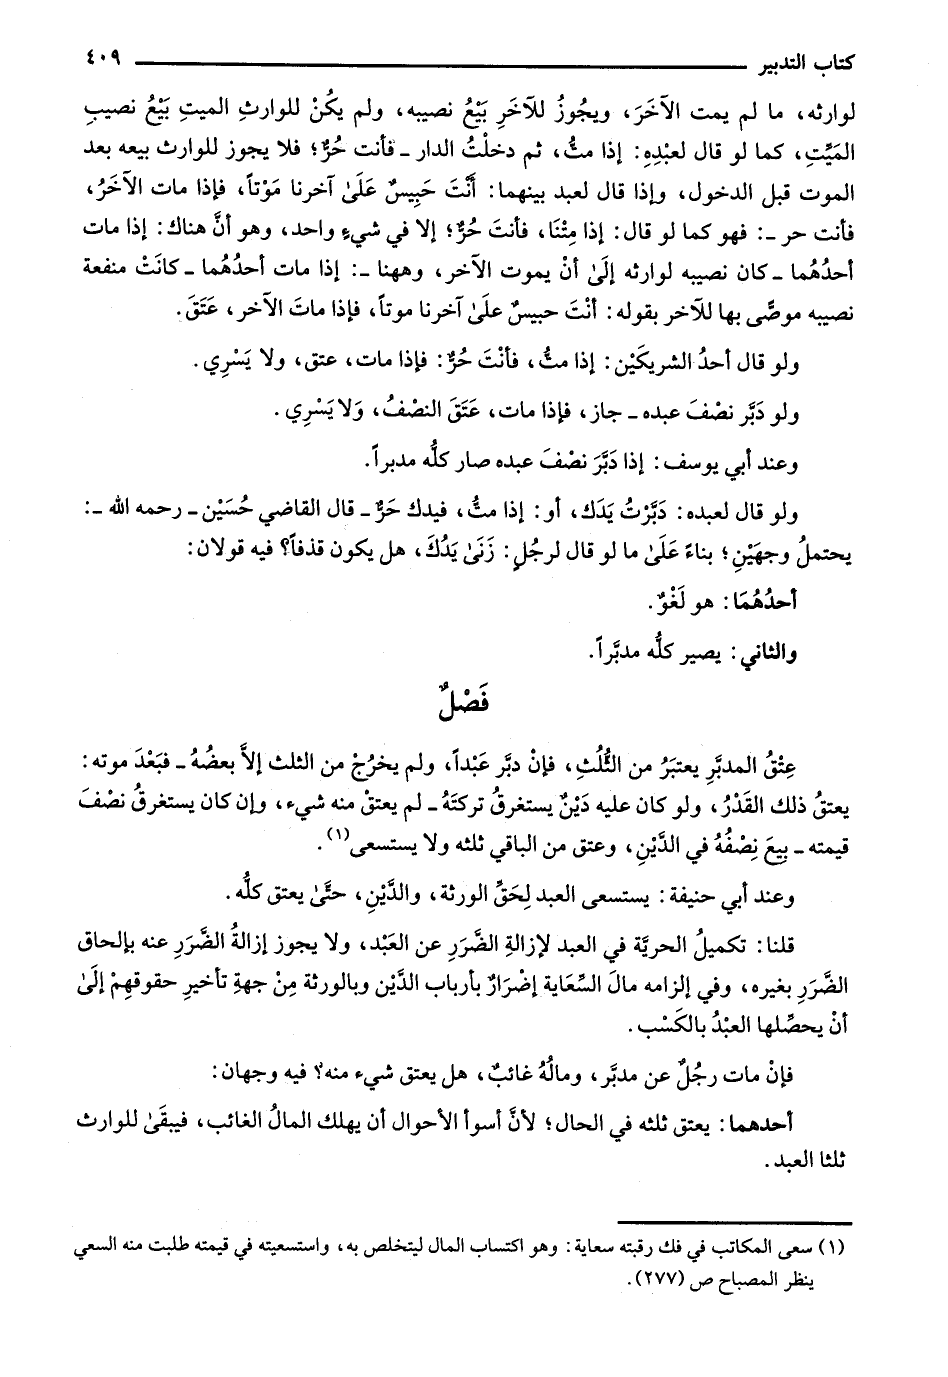 كتاب التدبير ٤٠٩
لوارثه، ما لم يمت الآخَرَ، ويجُوزُ للآخَرِ بَيْعُ نصيبه، ولم يكُنْ للوارثِ الميتِ بَيْعُ نصيبِ
المَيِّتِ، كما لو قال لعبْدِهِ: إذا متُّ، ثم دخلْتُ الدار ـ فأنت حُرٌّ؛ فلا يجوز للوارث بيعه بعد
الموت قبل الدخول، وإذا قال لعبد بينهما: أَنْتَ حَبِيسٌ عَلَىٰ آخرنا مَوْتاً، فإذا مات الآخَرُ،
فأنت حر ـ: فهو كما لو قال: إذا مِتْنَا، فأنتَ حُرٌّ؛ إلا في شيءٍ واحد، وهو أنَّ هناك: إذا مات
أحدُهُما ـ كان نصيبه لوارثه إلَىٰ أنْ يموت الآخر، وههنا ـ: إذا مات أحدُهُما ـ كانَتْ منفعة
نصيبه موصًّى بها للآخر بقوله: أنْتَ حبيسٌ علَىٰ آخرنا موتاً، فإذا ماتَ الآخر، عَتَقَ.
ولو قال أحدُ الشريكَيْن: إذا متُّ، فأنْتَ حُرٌّ: فإذا مات، عتق، ولا يَسْرِي.
ولو دَبَّر نصْفَ عبده ـ جاز، فإذا مات، عَتَقَ النصْفُ، وَلا يَسْرِي.
وعند أبي يوسف: إذا دَبَّرَ نصْفَ عبده صار كلُّه مدبراً.
ولو قال لعبده: دَبَّرْتُ يَدَك، أو: إذا متُّ، فيدك حَرٌّ ـ قال القاضي حُسَيْن ـ رحمه الله ـ:
يحتملُ وجهَيْنِ؛ بناءً عَلَىٰ ما لو قال لرجُلٍ: زَنَىٰ يَدُكَ، هل يكون قذفاً؟ فيه قولان:
أحدُهُمَا: هو لَغْوٌ.
والثاني: يصير كلُّه مدبَّراً.
فَصْلٌ
عِتْقُ المدبَّرِ يعتبَرُ من الثُّلُثِ، فإنْ دبَّر عَبْداً، ولم يخرُجْ من الثلث إلاَّ بعضُهُ ـ فبَعْدَ موته:
يعتقُ ذلك القَدْرُ، ولو كان عليه دَيْنٌ يستغرقُ تركتَهُ ـ لم يعتقْ منه شيء، وإن كان يستغرقُ نصْفَ
قيمته ـ بِيعَ نِصْفُهُ في الدَّيْنِ، وعتق من الباقي ثلثه ولا يستسعى(١).
وعند أبي حنيفة: يستسعى العبد لِحَقِّ الورثة، والدَّيْنِ، حتَّىٰ يعتق كلُّه.
قلنا: تكميلُ الحريَّة في العبد لإزالةِ الضَّرَرِ عن العَبْد، ولا يجوز إزالةُ الضَّرَرِ عنه بإلحاق
الضَّرَرِ بغيره، وفي إلزامه مالَ السِّعَاية إضْرَارٌ بأرباب الدَّيْن وبالورثة مِنْ جهةِ تأخيرِ حقوقهِمْ إلَىٰ
أنْ يحصِّلها العبْدُ بالكَسْب.
فإنْ مات رجُلٌ عن مدبَّر، ومالُهُ غائبٌ، هل يعتق شيء منه؟ فيه وجهان:
أحدهما: يعتق ثلثه في الحال؛ لأنَّ أسوأ الأحوال أن يهلك المالُ الغائب، فيبقَىٰ للوارث
ثلثا العبد.
(١) سعى المكاتب في فك رقبته سعاية: وهو اكتساب المال ليتخلص به، واستسعيته في قيمته طلبت منه السعي
ينظر المصباح ص (٢٧٧).